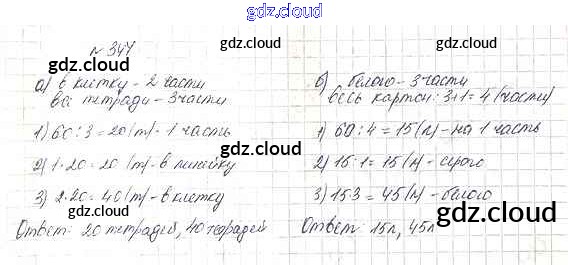 gdz.cloud
№ 347
gdz.cloud
gdz.cloud
а) в клетку - 2 части
все тетради - 3 части
gdz.cloud
1) 60 : 3 = 20 (т) - 1 часть
2) 1·20 = 20 (т) - в линейку
3) 2·20 = 40 (т) - в клетку
gdz.cloud
Ответ: 20 тетрадей, 40 тетрадей
б) белого - 3 части
весь картон: 3+1 = 4 (части)
gdz.cloud
1) 60 : 4 = 15 (л) - на 1 часть
2) 15·1 = 15 (л) - серого
3) 15·3 = 45 (л) - белого
gdz.cloud
Ответ: 15л, 45л